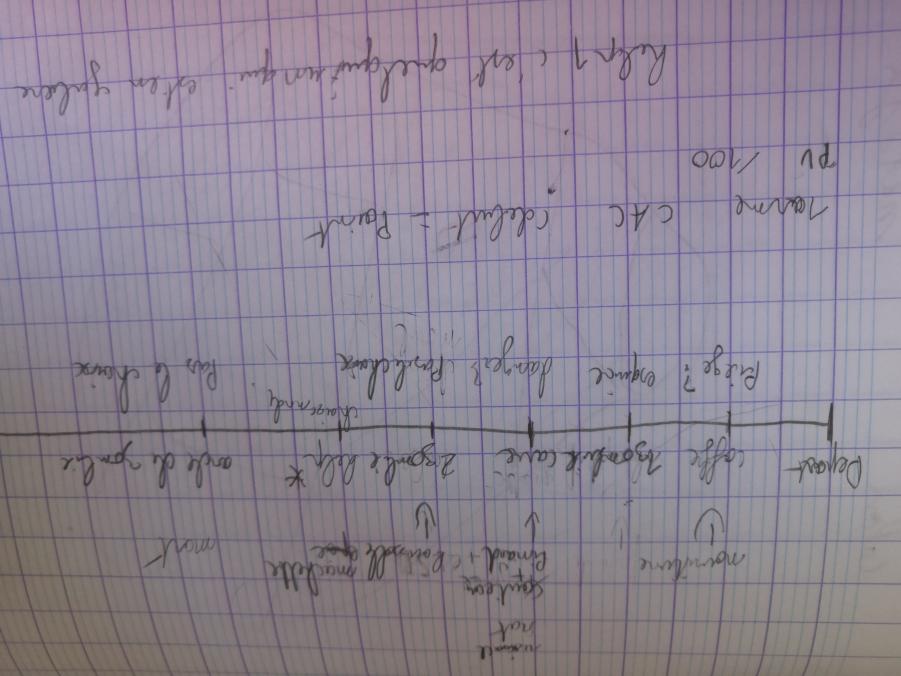 nat
nouriture
machette
mort
Depart coffre 1 zombie cave 2 zombie help* orde de zombie
Piège? esquive danger? Pas le choix Pas le choix
1 arme CAC (debut = Point
PV /100
help 1 c'est quelqu'un qui est en galere